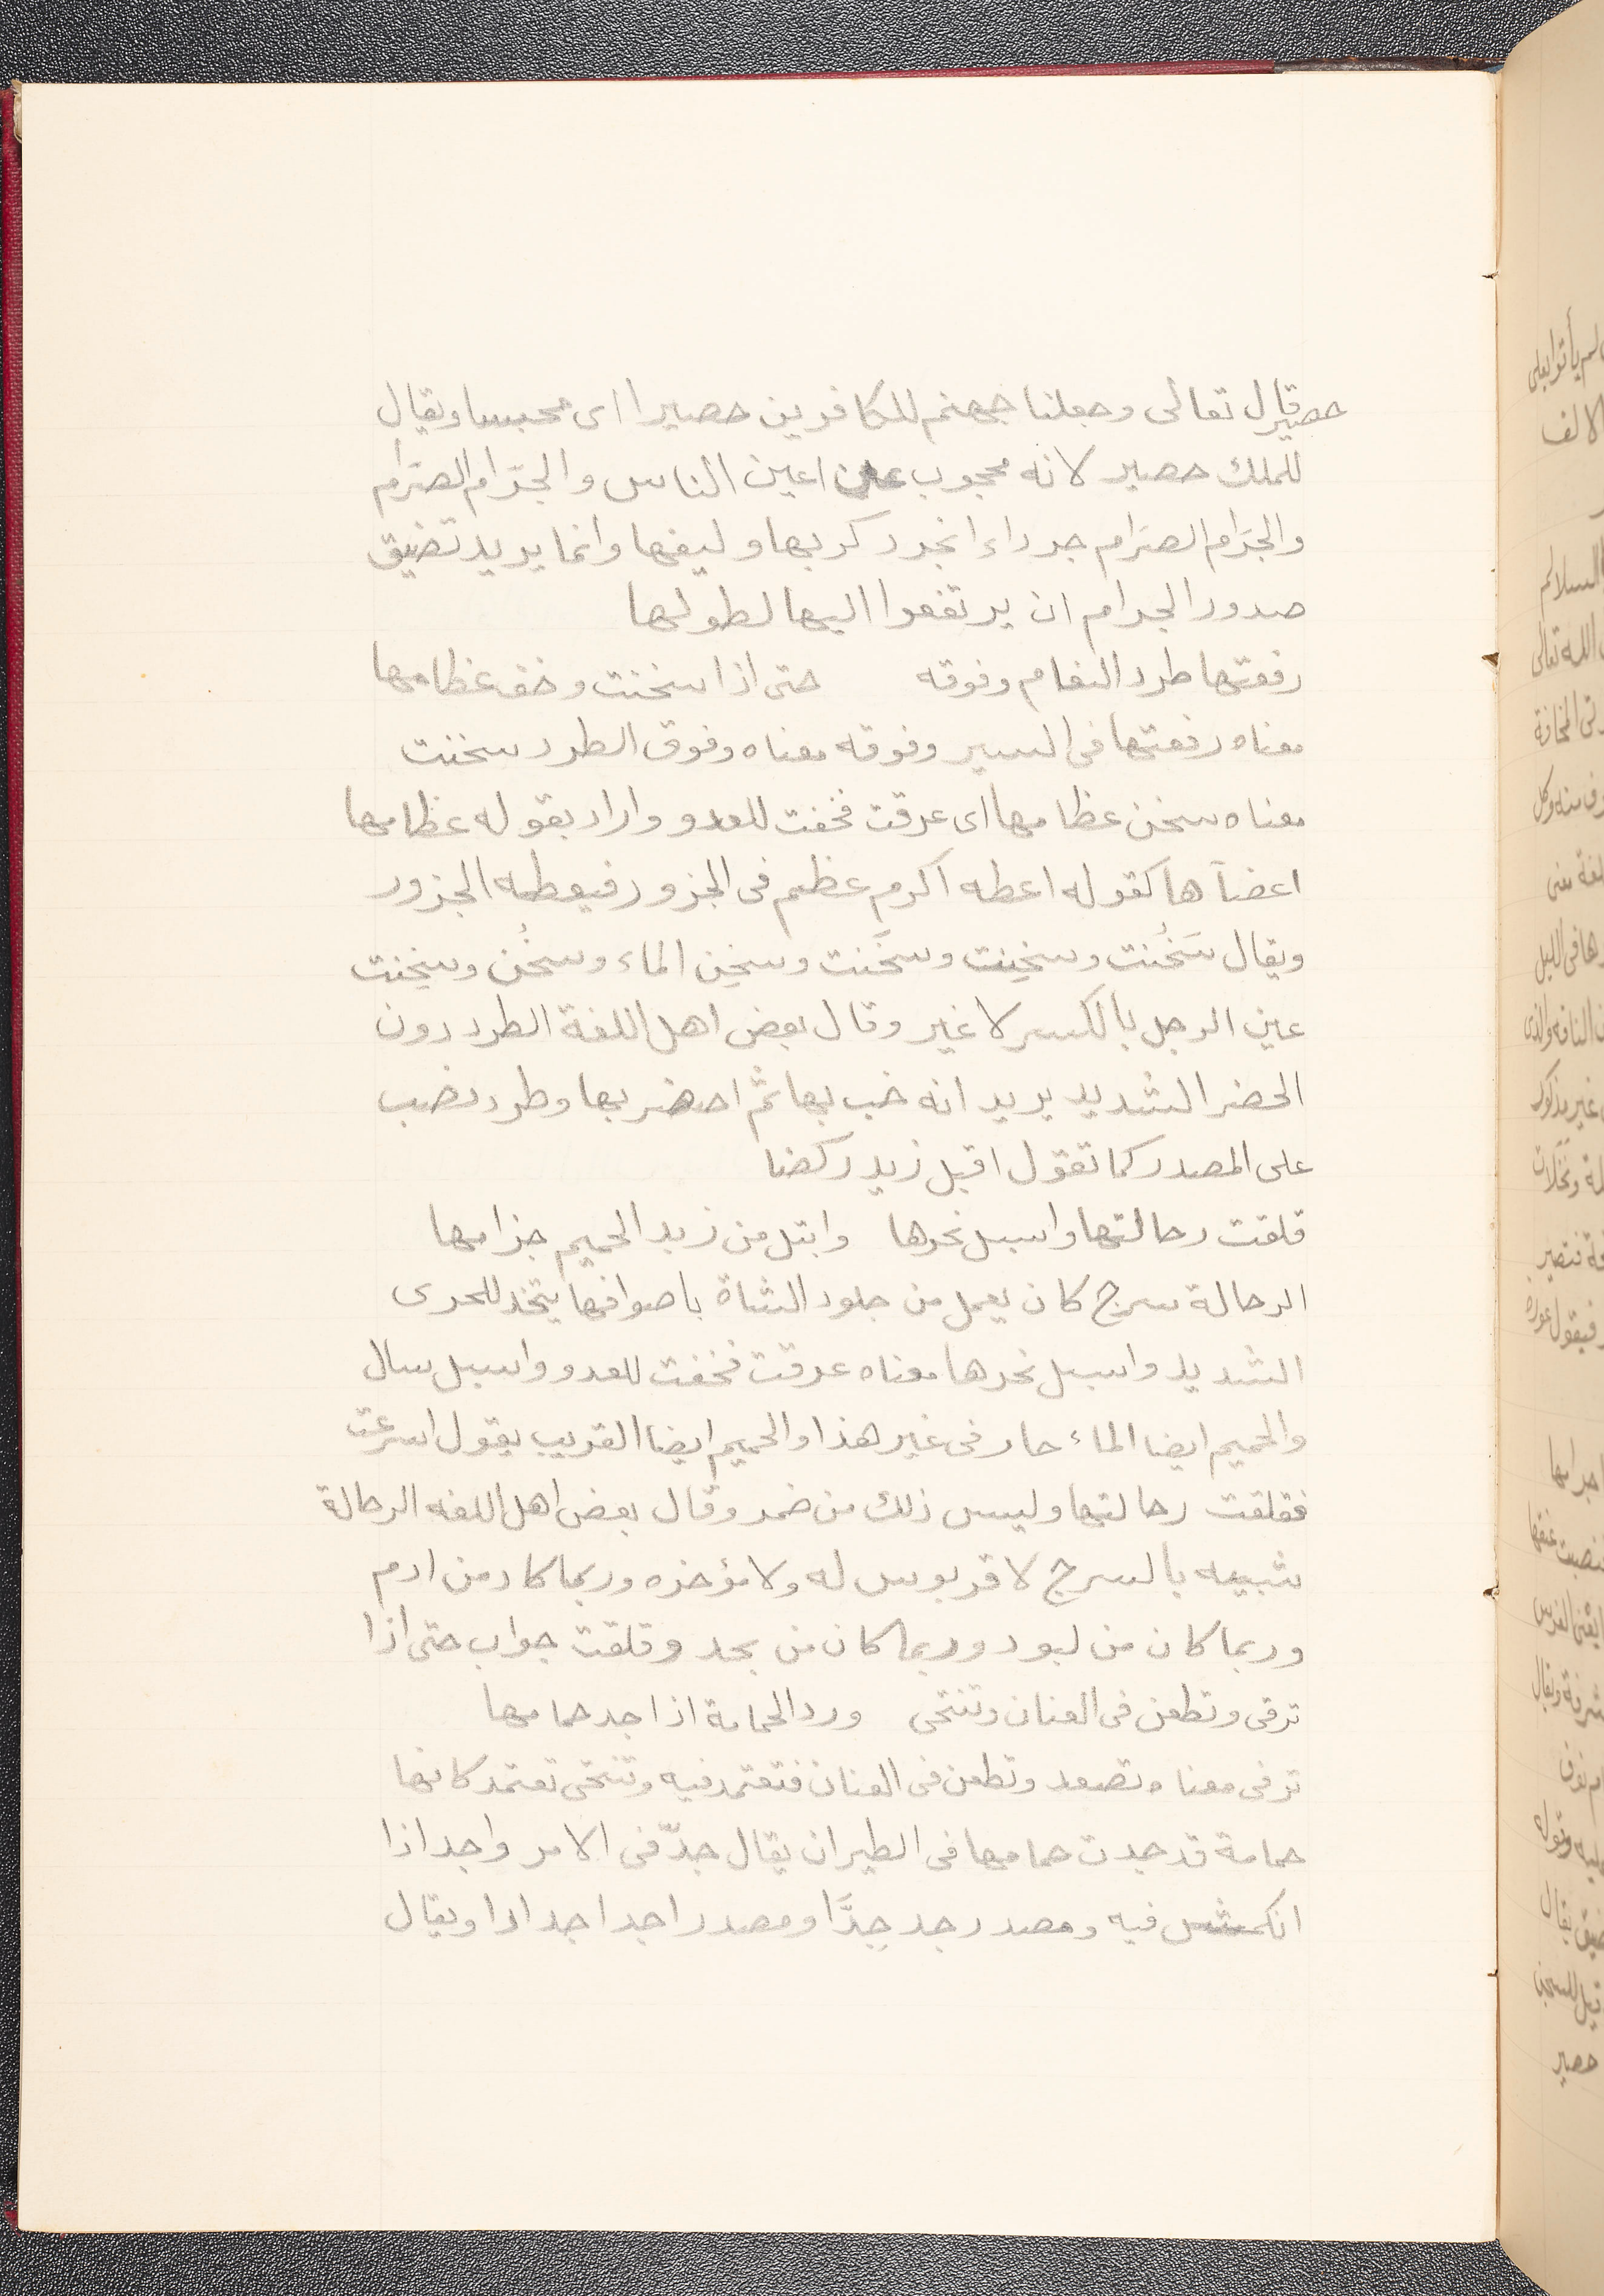 حصير قال تعالى وجعلنا جهنم للكافرين حصيرا اى محبسا ويقال
للملك حصير لانه محجوب عن اعين الناس والجرّام الصرّام
والجَرام الصرَام جرداء انجرد كربها وليفها وانما يريد تضيق
صدور الجرام ان يرتفعوا اليها لطولها
رفعتها طرد النعام وفوقه حتى اذا سخنت وخف عظامها
معناه رفعتها فى السير وفوقه معناه وفوق الطرد سخنت
معناه سخن عظامها اى عرقت فخفت للعدو واراد بقوله عظامها
اعضآها كقوله اعطه اكرم عظم فى الجزور فيعطيه الجزور
ويقال سَخُنت وسخِنت وسخَنت وسخِن الماء وسخُن وسخِنت
عين الرجل بالكسر لا غير وقال بعض اهل اللغة الطرد دون
الحضر الشديد يريد انه خب بها ثم احضر بها وطرد نصب
على المصدر كما تقول اقبل زيد ركضا
قلقت رحالتها واسبل نحرها وابتل من زبد الحميم حزامها
الرحالة سرج كان يعمل من جلود الشاة باصوافها يتخذ للجرى
الشديد واسبل نحرها معناه عرقت فخفت للعدو واسبل سال
والحميم ايضا الماء حار فى غير هذا والحميم ايضا القريب يقول اسرعت
فقلقت رحالتها وليس ذلك من ضمر وقال بعض اهل اللغه الرحالة
شبيه بالسرج لا قربوس له ولا مؤخره وربما كان من ادم
وربما كان من لبود وربما كان من بجد وقلقت جواب حتى اذا
ترقى وتطعن فى العنان وتنتحى ورد الحمامة اذا جد حمامها
ترقى معناه تصعد وتطعن فى العنان فتعتمد فيه وتنتحى تعتمد كانها
حمامة قد جدت حمامها فى الطيران يقال جدّ فى الامر واجد اذا
انكمش فيه ومصدر جد جِدَّا ومصدر اجد اجدادا ويقال